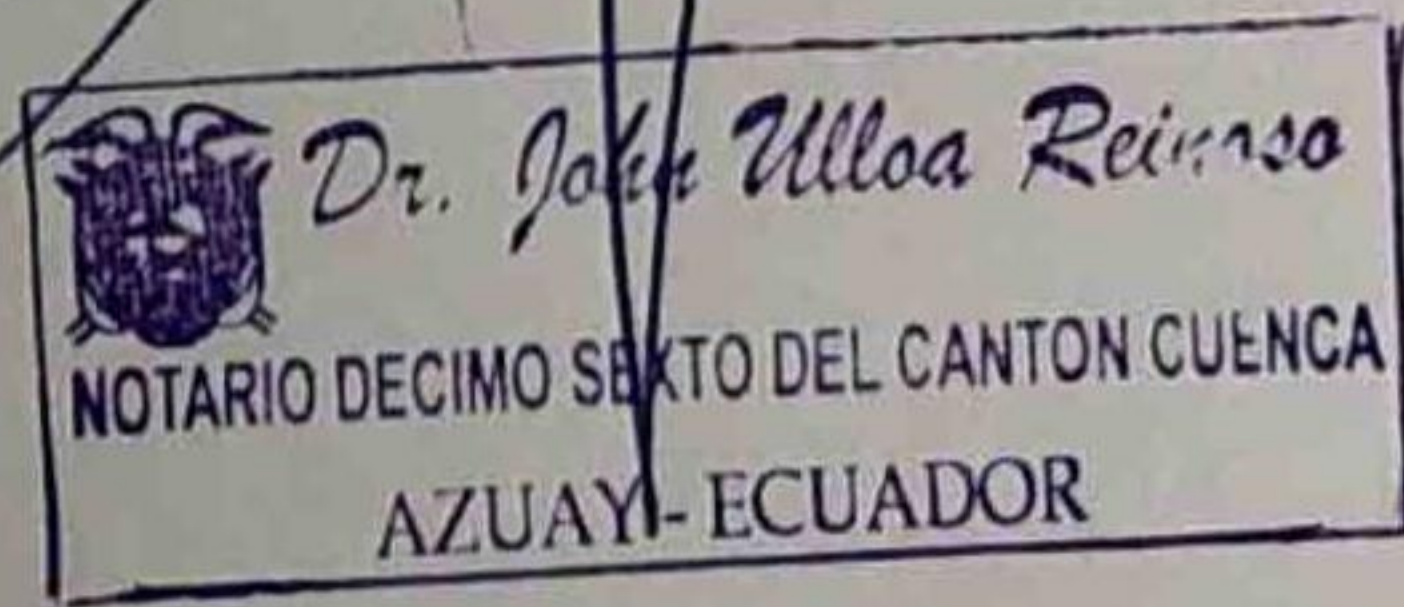 Dr. John Ulloa
NOTARIO DECIMO SEXTO DEL CANTON CUENCA
AZUAY - ECUADOR